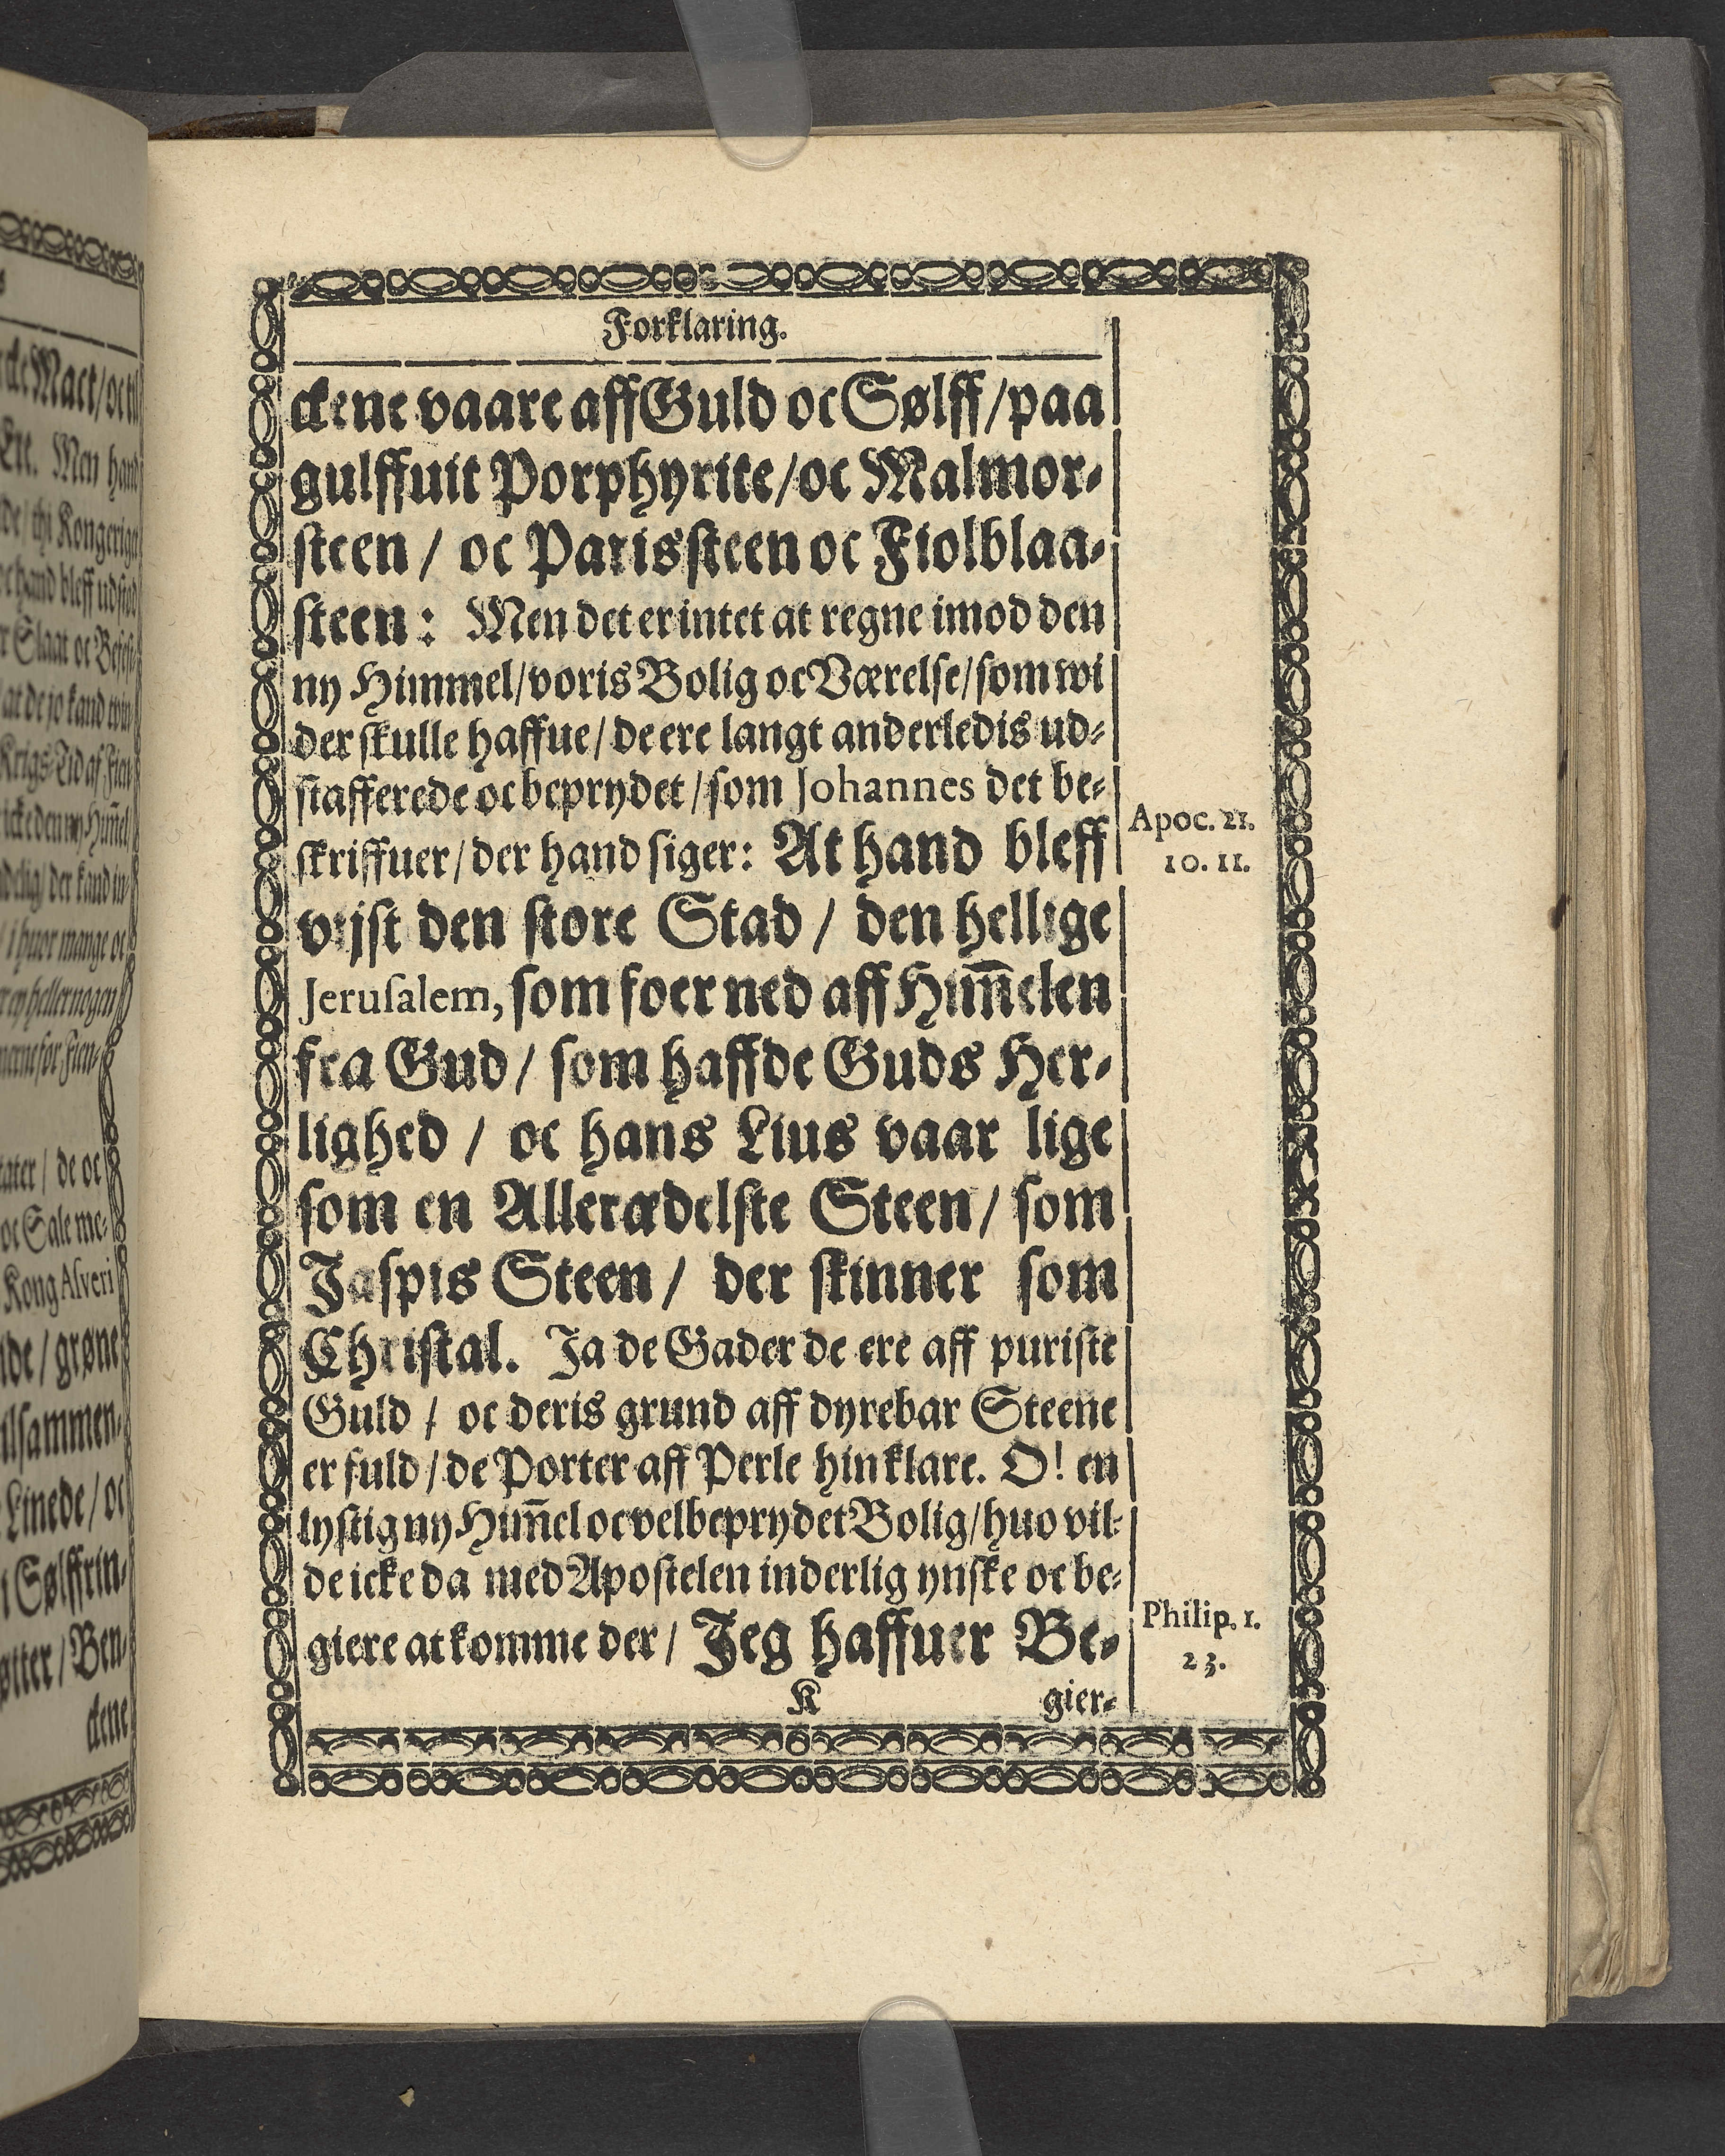 Forklaring.
ckene vaare aff Guld oc Sølff / paa
gulffuit Porphyrite / oc Malmor-
steen / oc Parissteen oc Fiolblaa-
steen: Men det er intet at regne imod den
ny Himmel / voris Bolig oc Værelse / som wi
der skulle haffue / de ere langt anderledis ud-
stafferede oc beprydet / som Johannes det be-
Apoc. 21.
skriffuer / der hand siger: At hand bleff
10. 11.
vijst den store Stad / den hellige
Jerusalem, som foer ned aff Him̅elen
fra Gud / som haffde Guds Her-
lighed / oc hans Lius vaar lige
som en Alleræedelste Steen / som
Jaspis Steen / der skinner som
Christal. Ja de Gader de ere aff puriste
Guld / oc deris grund aff dyrebar Steene
er fuld / de Porter aff Perle hin klare. O! en
lystig ny Him̅el oc velbeprydet Bolig / huo vil-
de icke da med Apostelen inderlig ynske oc be-
Philip. 1.
giere at komme der / Jeg haffuer Be-
23.
K gier-
cke Mact / oc til
Ere. Men hand
de / thi Kongeriga
oc hand bleff udstød
r Slaat oc Befest-
at de jo kand vin-
Krigs-Tid af Fien-
icke den ny Him̅el
delig / der kand in-
/ i huor mange oc
er ey heller nogen
tater / de oc
oc Sale me-
Kong Asveri
lde / grøne
ilsammen-
Linede / oc
i Sølffrin-
øtter / Ben-
ckene